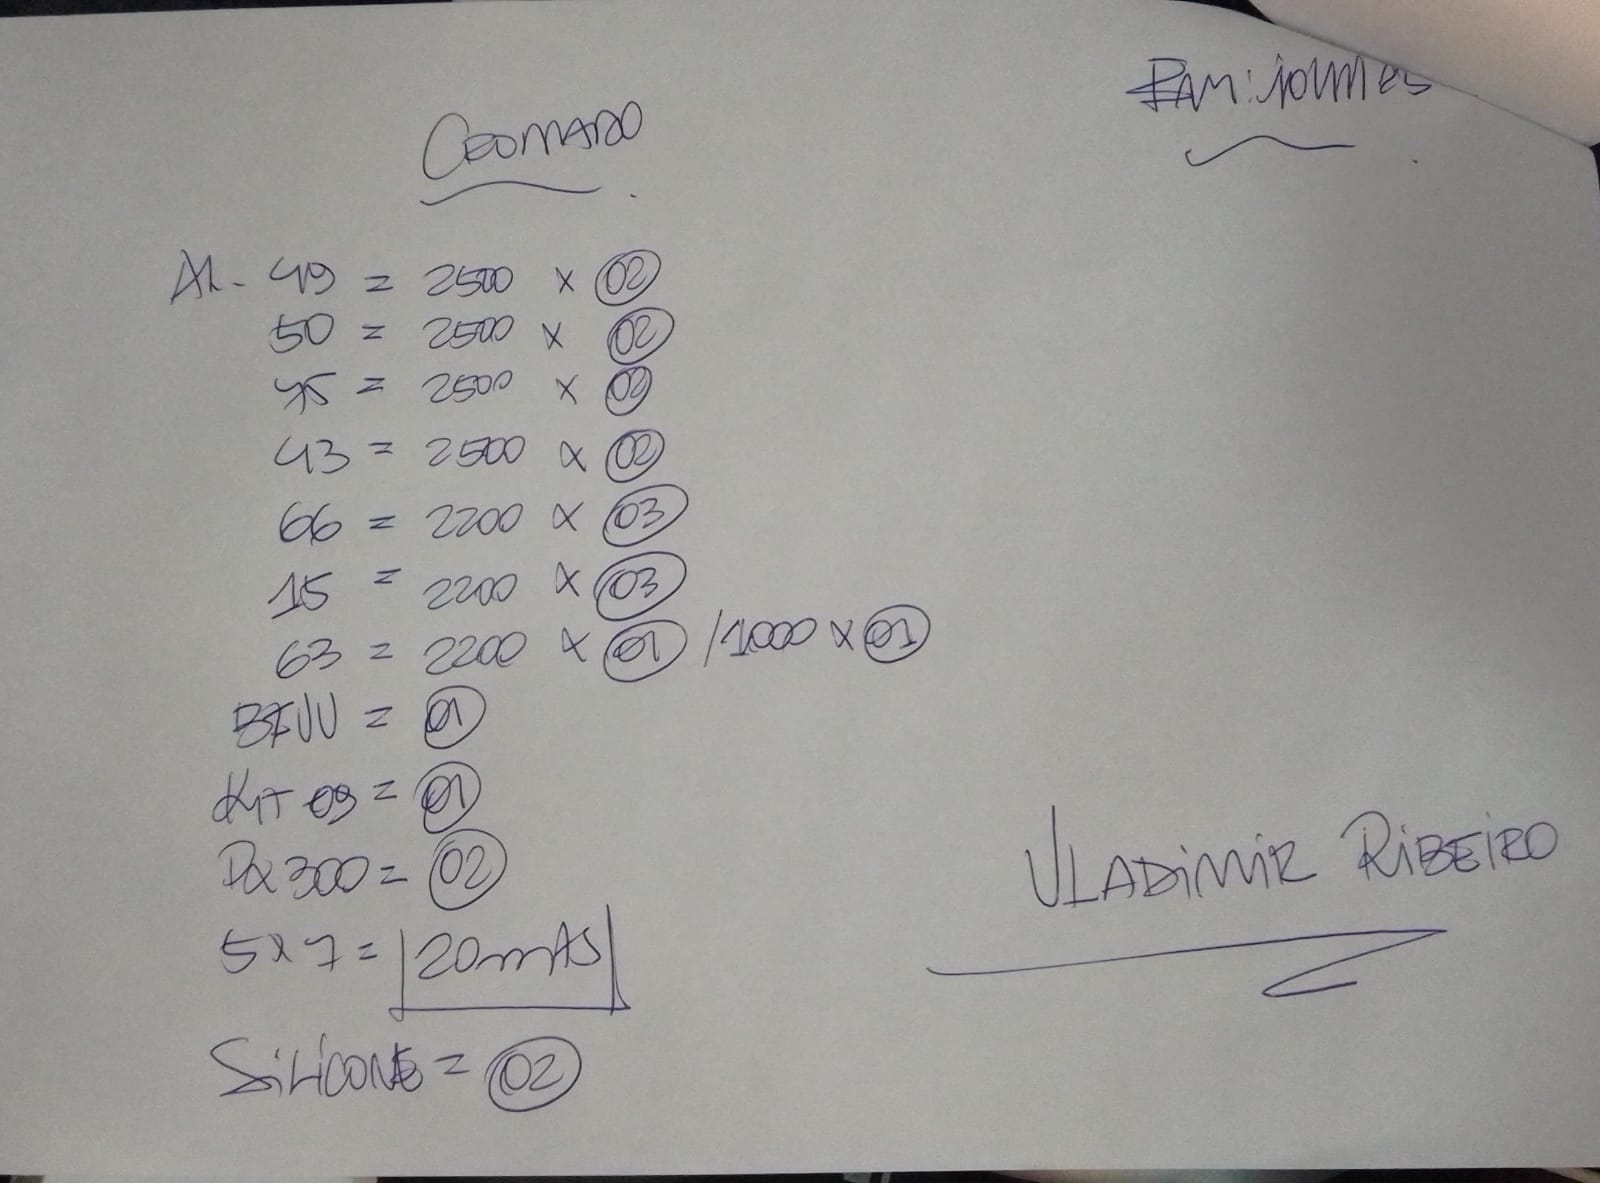 CROMADO
AL - 49 = 2500 x 02
50 = 2500 x 02
45 = 2500 x 02
43 = 2500 x 02
66 = 2200 x 03
15 = 2200 x 03
63 = 2200 x 01 / 1000 x 01
= 01
KIT 09 = 01
300 = 02
5 x 7 = 20 mts
SiLiCONE = 02
VLADiMiR RiBEiRO